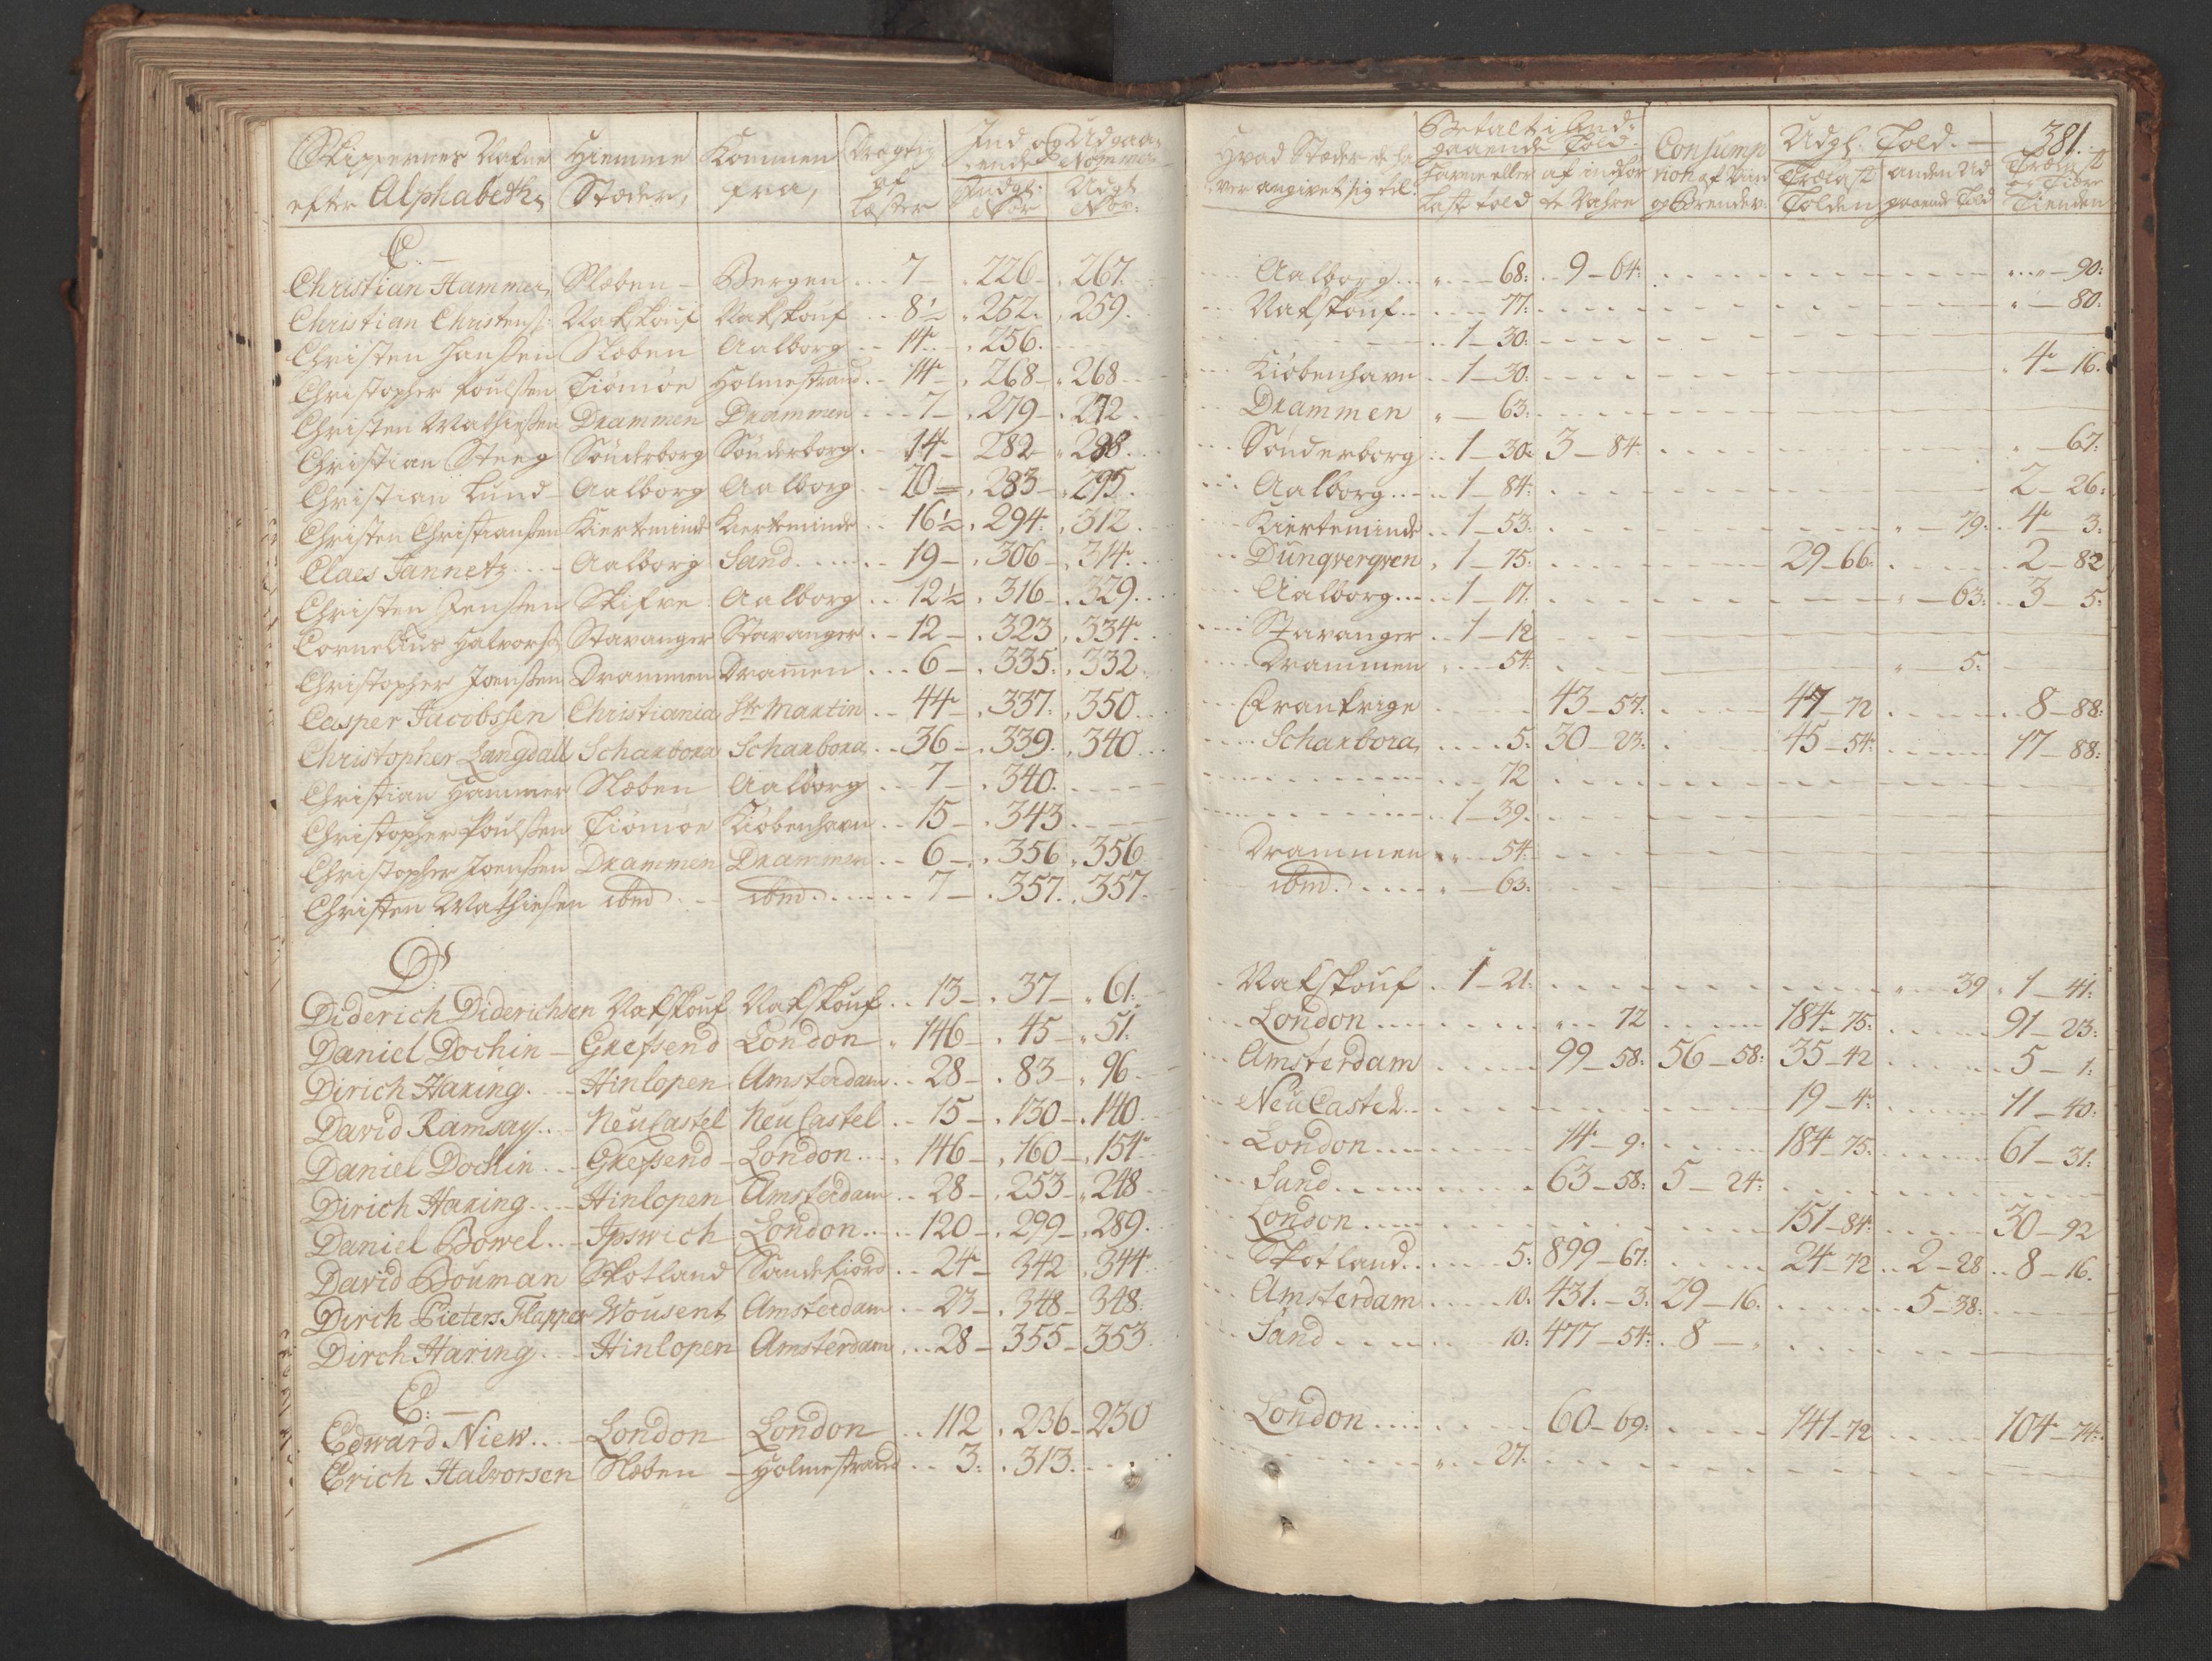 Skippernes Nafne | Hiemme | Kommen | Drægtig | Ind og Udgaa-
efter Alphabeth, | Stæder, | fra, | af Læster | ende Nommer | Indgl: No | Udgl No
C.
Christian Hammer, Slæben - Bergen ... 7 - 226 - 267.
Christian Christens: Nakskouf Nakskouf .. 8½ 252. 259.
Christen Hanssen Slæben Aalborg .. 14. 256.
Christopher Poulssen Tiømøe Holmestrand .. 14 - 268 - 268
Christen Mathiessen Drammen Drammen .. 7 - 279 - 272
Christian Steeg Sønderborg Sønderborg . 14 - 282 288.
Christian Lund - Aalborg Aalborg .. 20 - 283 - 295.
Christen Christianssen Kierteminde Kierteminde .. 16½ 294. 312
Claes Jannetz .... Aalborg Sand ..... 19 - 306 - 314.
Christen Jenssen Skifve Aalborg .. 12½ 316 - 329.
Cornelius Halvors: Stavanger Stavanger .. 12 - 323 334.
Christopher Joenssen Drammen Dramen ... 6 - 335. 332
Casper Jacobssen Christiania St Martin .. 44 - 337. 350
Christopher Langdall Scharbora Scharbora .. 36 - 339. 340
Christian Hammer Slæben Aalborg ... 7 - 340.
Christopher Poulssen Tiømøe Kiøbenhavn .. 15 - 343
Christopher Joenssen Drammen Drammen .. 6 - 356 356
Christen Mathiesen ibmd .. ibmd ...... 7 - 357. 357.
D.
Diderich Diderichsen Nakskouf Nakskouf .. 13 - 37 - 61.
Daniel Dochin - Grefsend London . 146 - 45 - 51.
Dirich Haring. Hinlopen Amsterdam .. 28 - 83 - 96
David Ramsay .. NeuCastel NeuCastel .. 15 - 130 - 140
Daniel Dochin ... Grefsend - London ... 146 - 160 - 154
Dirich Haring .... Hinlopen Amsterdam .. 28 - 253 - 248
Daniel Bowel .. Ipswich London .... 120 - 299 - 289.
David Bouman Skotland Sandefiord .. 24 - 342 344
Dirch Pieters Flapper Wousent Amsterdam .. 23 - 348 - 348.
Dirch Haring ... Hinlopen Amsterdam ... 28 - 355 - 353
E.
Edward Niew .. London London .. 112 . 236 - 230
Erich Halvorsen Slæben - Holmestrand .. 3. 313.
381.
Hvad Stæder de ha- | Betalt i Ind- | Consump- | Udgl. Told.
ver angivet sig til | gaaende Told. | tion af Viin | Trælast Tolden | anden Ud gaaende Told | Trælast og Tiære Tienden
Laste told | af indför te Vahre | og Brendev:
Aalborg ... 68: 9 - 64: 90:
Nakskouf .. 77: 80.
1 - 30:
Kiöbenhavn .. 1 - 30: 4 - 16.
Drammen 63:
Sønderborg .. 1 - 30: 3 - 84: 67:
Aalborg .... 1 - 84: 2 - 26:
Kierteminde .. 1 - 53: 79: 4 3:
Dunqverqven . 1 - 75: 29 - 66. 2 - 82
Aalborg .... 1 - 17. 63: 3 - 5:
Stavanger .. 1 - 12
Drammen 54. 5:
Frankrige 43 - 57: 47 - 72 8 - 88:
Scharbora 5: 30 - 23: 45 - 54: 17 - 88:
72
1 - 39.
Drammen 54:
ibmd. 63:
Nakskouf .. 1 - 21: 39 1 - 41:
London 72 184 - 75: 91 - 23:
Amsterdam 99 - 58: 56 - 58: 35 - 42 5 - 1:
NeuCastel 19 - 4: 11 - 40:
London 14 - 9. 184 - 75: 61 - 31:
Sand 63 - 58: 5 - 24:
London 151 - 84: 30 - 92
Skotland 5: 899 - 67: 24 - 72 2 - 28 8 - 16.
Amsterdam 10: 431. - 3: 29 - 16. 5 - 38:
Sand 10: 477 - 54: 8 -
London 60 - 69: 141 - 72 104 - 74:
27.